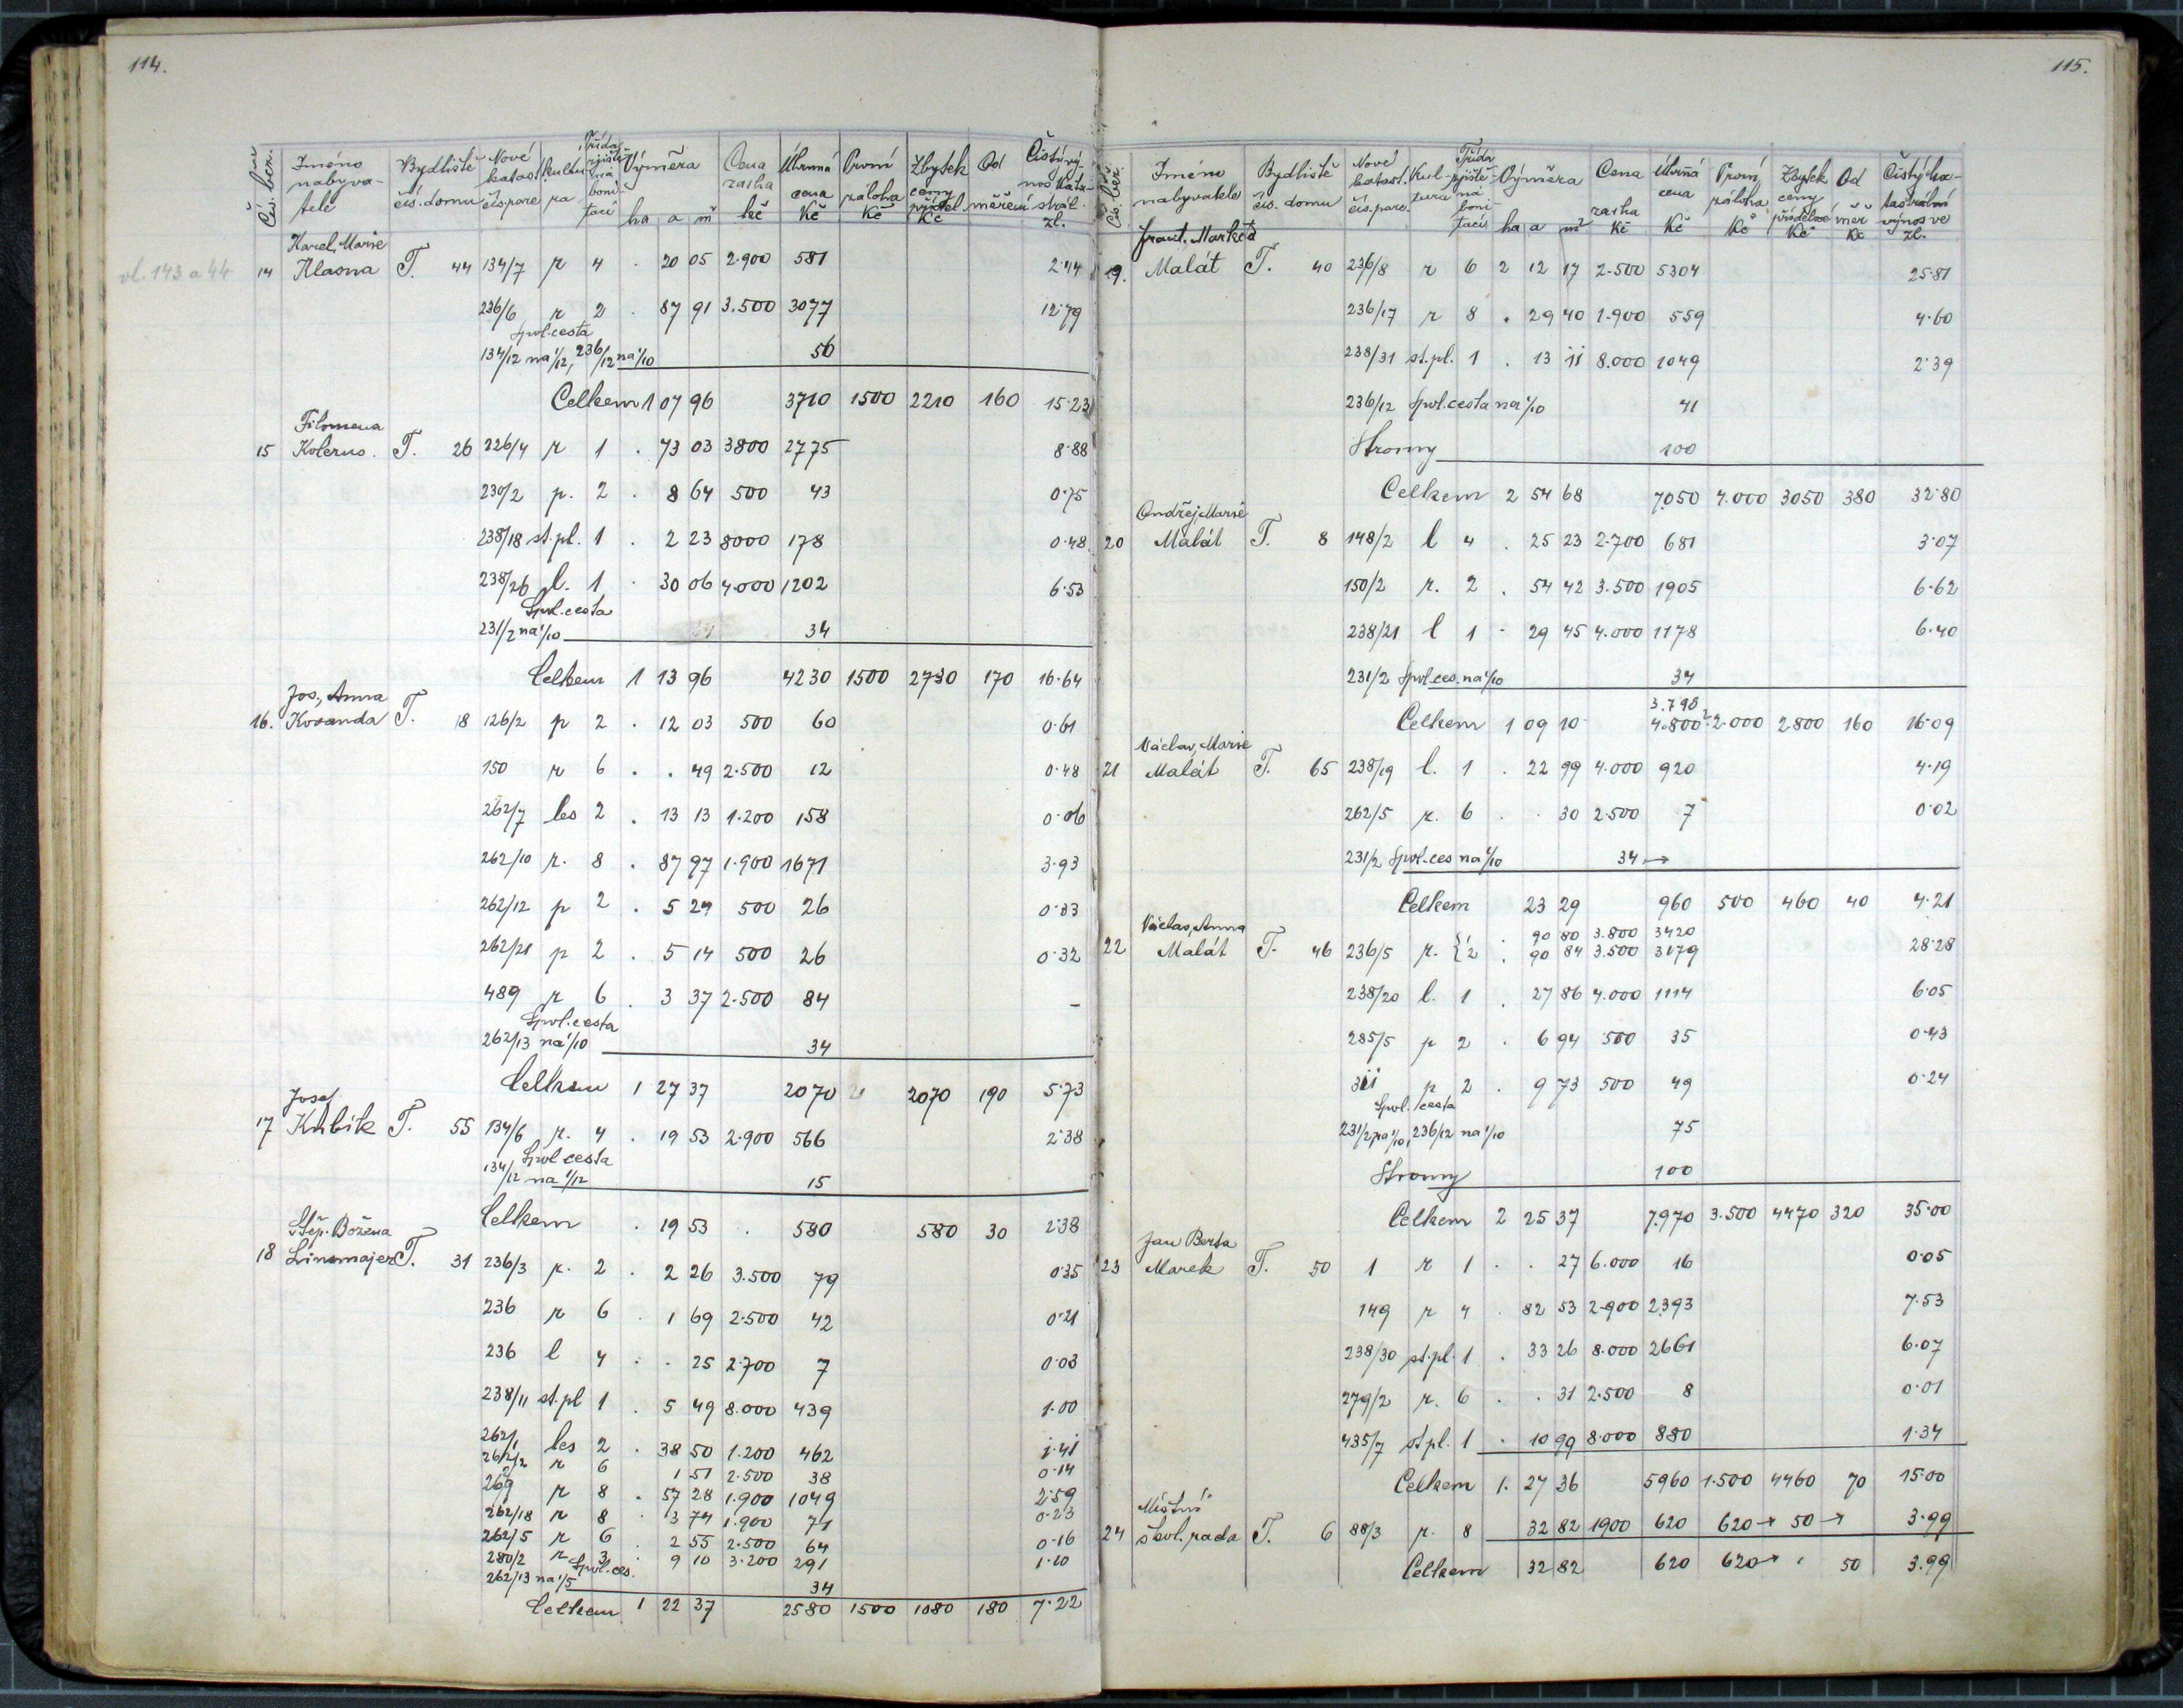 114.
Čís. běž.
Jméno nabyva-tele
Bydliště čís. domu
Nové katast. čís. parc
Kultu-ra
Třída zjiště-ná boni-tací
Výměra ha a m²
Cena za 1 ha kč
Úhrnná cena Kč
První záloha Kč
Zbytek ceny přídel. Kč
Od měření
Čistý vý-nos kata-strál. zl.
vl. 143 a 44
Karel, Marie
14 Klasna T. 44 134/7 r 4 . 20 05 2.900 581 2.44
236/6 r 2 . 87 91 3.500 3077 12.79
spol. cesta
134/12 na 1/12, 236/12 na 1/10 56
Celkem 1 07 96 3710 1500 2210 160 15.23
Filomena
15 Kolerus. T. 26 226/4 r 1 . 73 03 3800 2775 8.88
230/2 p. 2 . 8 64 500 43 0.75
238/18 st. pl. 1 . 2 23 8000 178 0.48
238/26 l. 1 . 30 06 4.000 1202 6.53
Spol. cesta
231/2 na 1/10 34
Celkem 1 13 96 4230 1500 2730 170 16.64
Jos., Anna
16. Kosanda T. 18 126/2 p 2 . 12 03 500 60 0.61
150 r 6 . . 49 2.500 12 0.48
262/7 les 2 . 13 13 1.200 158 0.06
262/10 r. 8 . 87 97 1.900 1671 3.93
262/12 p 2 . 5 24 500 26 0.33
262/21 p 2 . 5 14 500 26 0.32
489 r 6 . 3 37 2.500 84 –
Spol. cesta
262/13 na 1/10 34
Celkem 1 27 37 2070 2070 190 5.73
Josef
17 Kubík T. 55 134/6 r. 4 . 19 53 2.900 566 2.38
Spol cesta
134/12 na 1/12 15
Celkem . 19 53 . 580 580 30 2.38
Štěp. Božena
18 Linsmajer T. 31 236/3 r. 2 . 2 26 3.500 79 0.35
236 r 6 . 1 69 2.500 42 0.21
236 l 4 . . 25 2.700 7 0.03
238/11 st. pl 1 . 5 49 8.000 439 1.00
262/1 les 2 . 38 50 1.200 462 1.41
262/2 r 6 1 51 2.500 38 0.14
r 8 . 57 28 1.900 1049 2.59
262/18 r 8 . 3 74 1.900 71 0.23
262/5 r 6 . 2 55 2.500 64 0.16
280/2 r 3 . 9 10 3.200 291 1.10
Spol. ces.
262/13 na 1/5 34
Celkem 1 22 37 2580 1500 1080 180 7.22
115.
Čís. běž.
Jméno nabyvatele
Bydliště čís. domu
Nové katast. čís. parc.
Kul-tura
Třída zjiště-ná boni-tací
Výměra ha a m²
Cena za 1 ha Kč
Úhrnná cena Kč
První záloha Kč
Zbytek ceny přídělové Kč
Od měř Kč
Čistý ka-tastrální výnos ve zl.
Frant. Markéta
19. Malát T. 40 236/8 r 6 2 12 17 2.500 5304 25.81
236/17 r 8 . 29 40 1.900 559 4.60
238/31 st. pl. 1 . 13 11 8.000 1049 2.39
236/12 Spol. cesta na 1/10 41
Stromy 100
Celkem 2 54 68 7050 4.000 3050 380 32.80
Ondřej, Marie
20 Malát T. 8 148/2 l 4 . 25 23 2.700 681 3.07
150/2 r. 2 . 54 42 3.500 1905 6.62
238/21 l 1 . 29 45 4.000 1178 6.40
231/2 Spol. ces. na 1/10 34
3.798
Celkem 1 09 10 4.800 2.000 2800 160 16.09
Václav, Marie
21 Malát T. 65 238/19 l. 1 . 22 99 4.000 920 4.19
262/5 r. 6 . . 30 2.500 7 0.02
231/2 Spol. ces na 1/10 34 →
Celkem 23 29 960 500 460 40 4.21
Václav, Anna
1 . 90 80 3.800 3420
22 Malát T. 46 236/5 r. { 2 . 90 84 3.500 3179 28.28
238/20 l. 1 . 27 86 4.000 1114 6.05
285/5 p 2 . 6 94 500 35 0.43
311 p 2 . 9 73 500 49 0.24
Spol. cesta
231/2 na 1/10, 236/12 na 1/10 75
Stromy 100
Celkem 2 25 37 7.970 3.500 4470 320 35.00
Jan Berta
23 Marek T. 50 1 r 1 . . 27 6.000 16 0.05
149 r 4 . 82 53 2.900 2393 7.53
238/30 st. pl. 1 . 33 26 8.000 2661 6.07
279/2 r. 6 . . 31 2.500 8 0.01
435/7 st pl. 1 . 10 99 8.000 880 1.34
Celkem 1. 27 36 5960 1.500 4460 70 15.00
Místní
24 škol. rada T. 6 88/3 r. 8 32 82 1900 620 620 → 50 → 3.99
Celkem 32 82 620 620 → 50 3.99